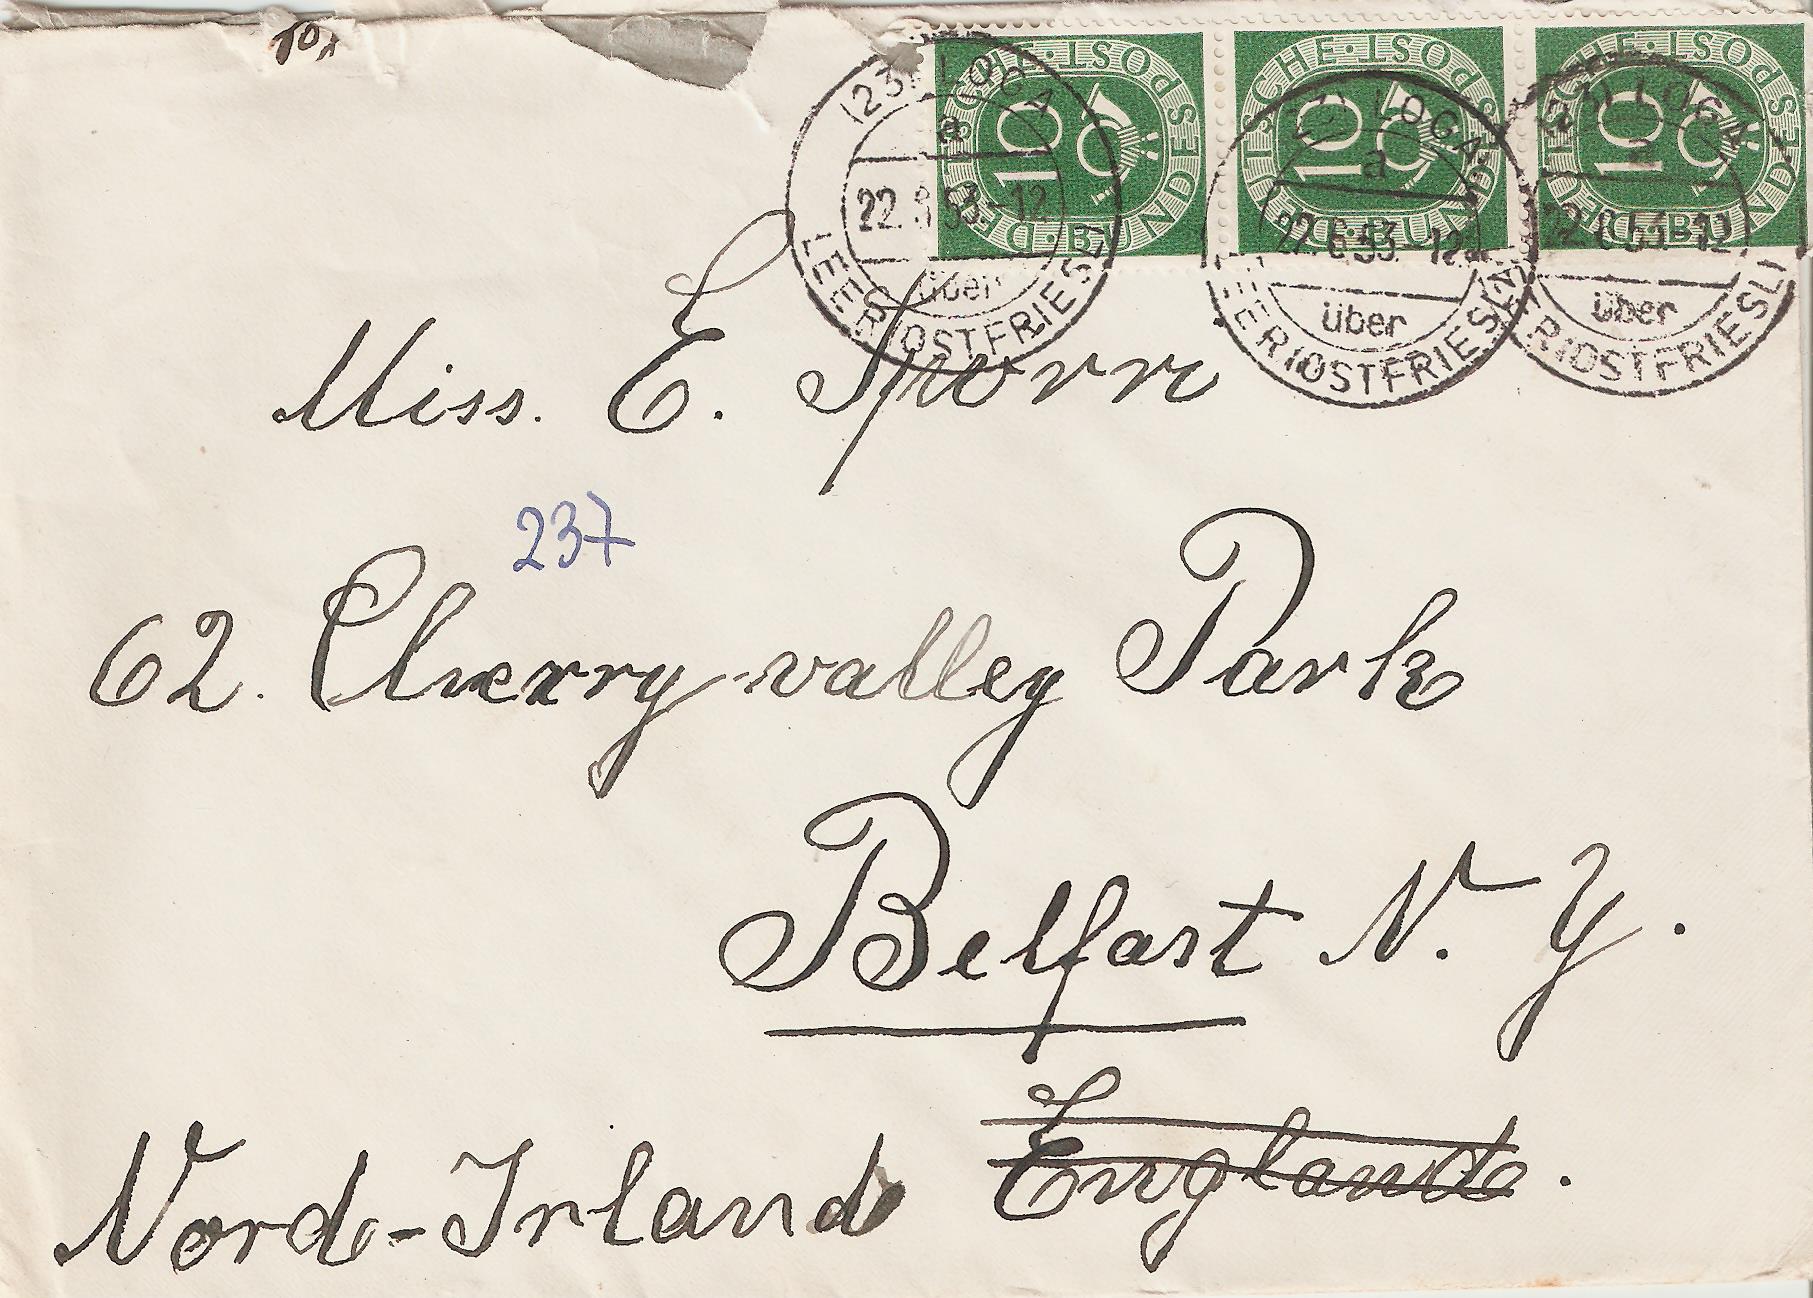 10
DEUTSCHE · BUNDESPOST
10
DEUTSCHE · BUNDESPOST
10
DEUTSCHE · BUNDESPOST
(23) LOGA
a
22.6.53.-12
über
LEER (OSTFRIESL)
(23) LOGA
a
22.6.53.-12
über
LEER (OSTFRIESL)
(23) LOGA
a
22.6.53.-12
über
LEER (OSTFRIESL)
Miss. E. Spurr
237
62. Cherry-valley Park
Belfast N. Y.
Nord-Irland England.